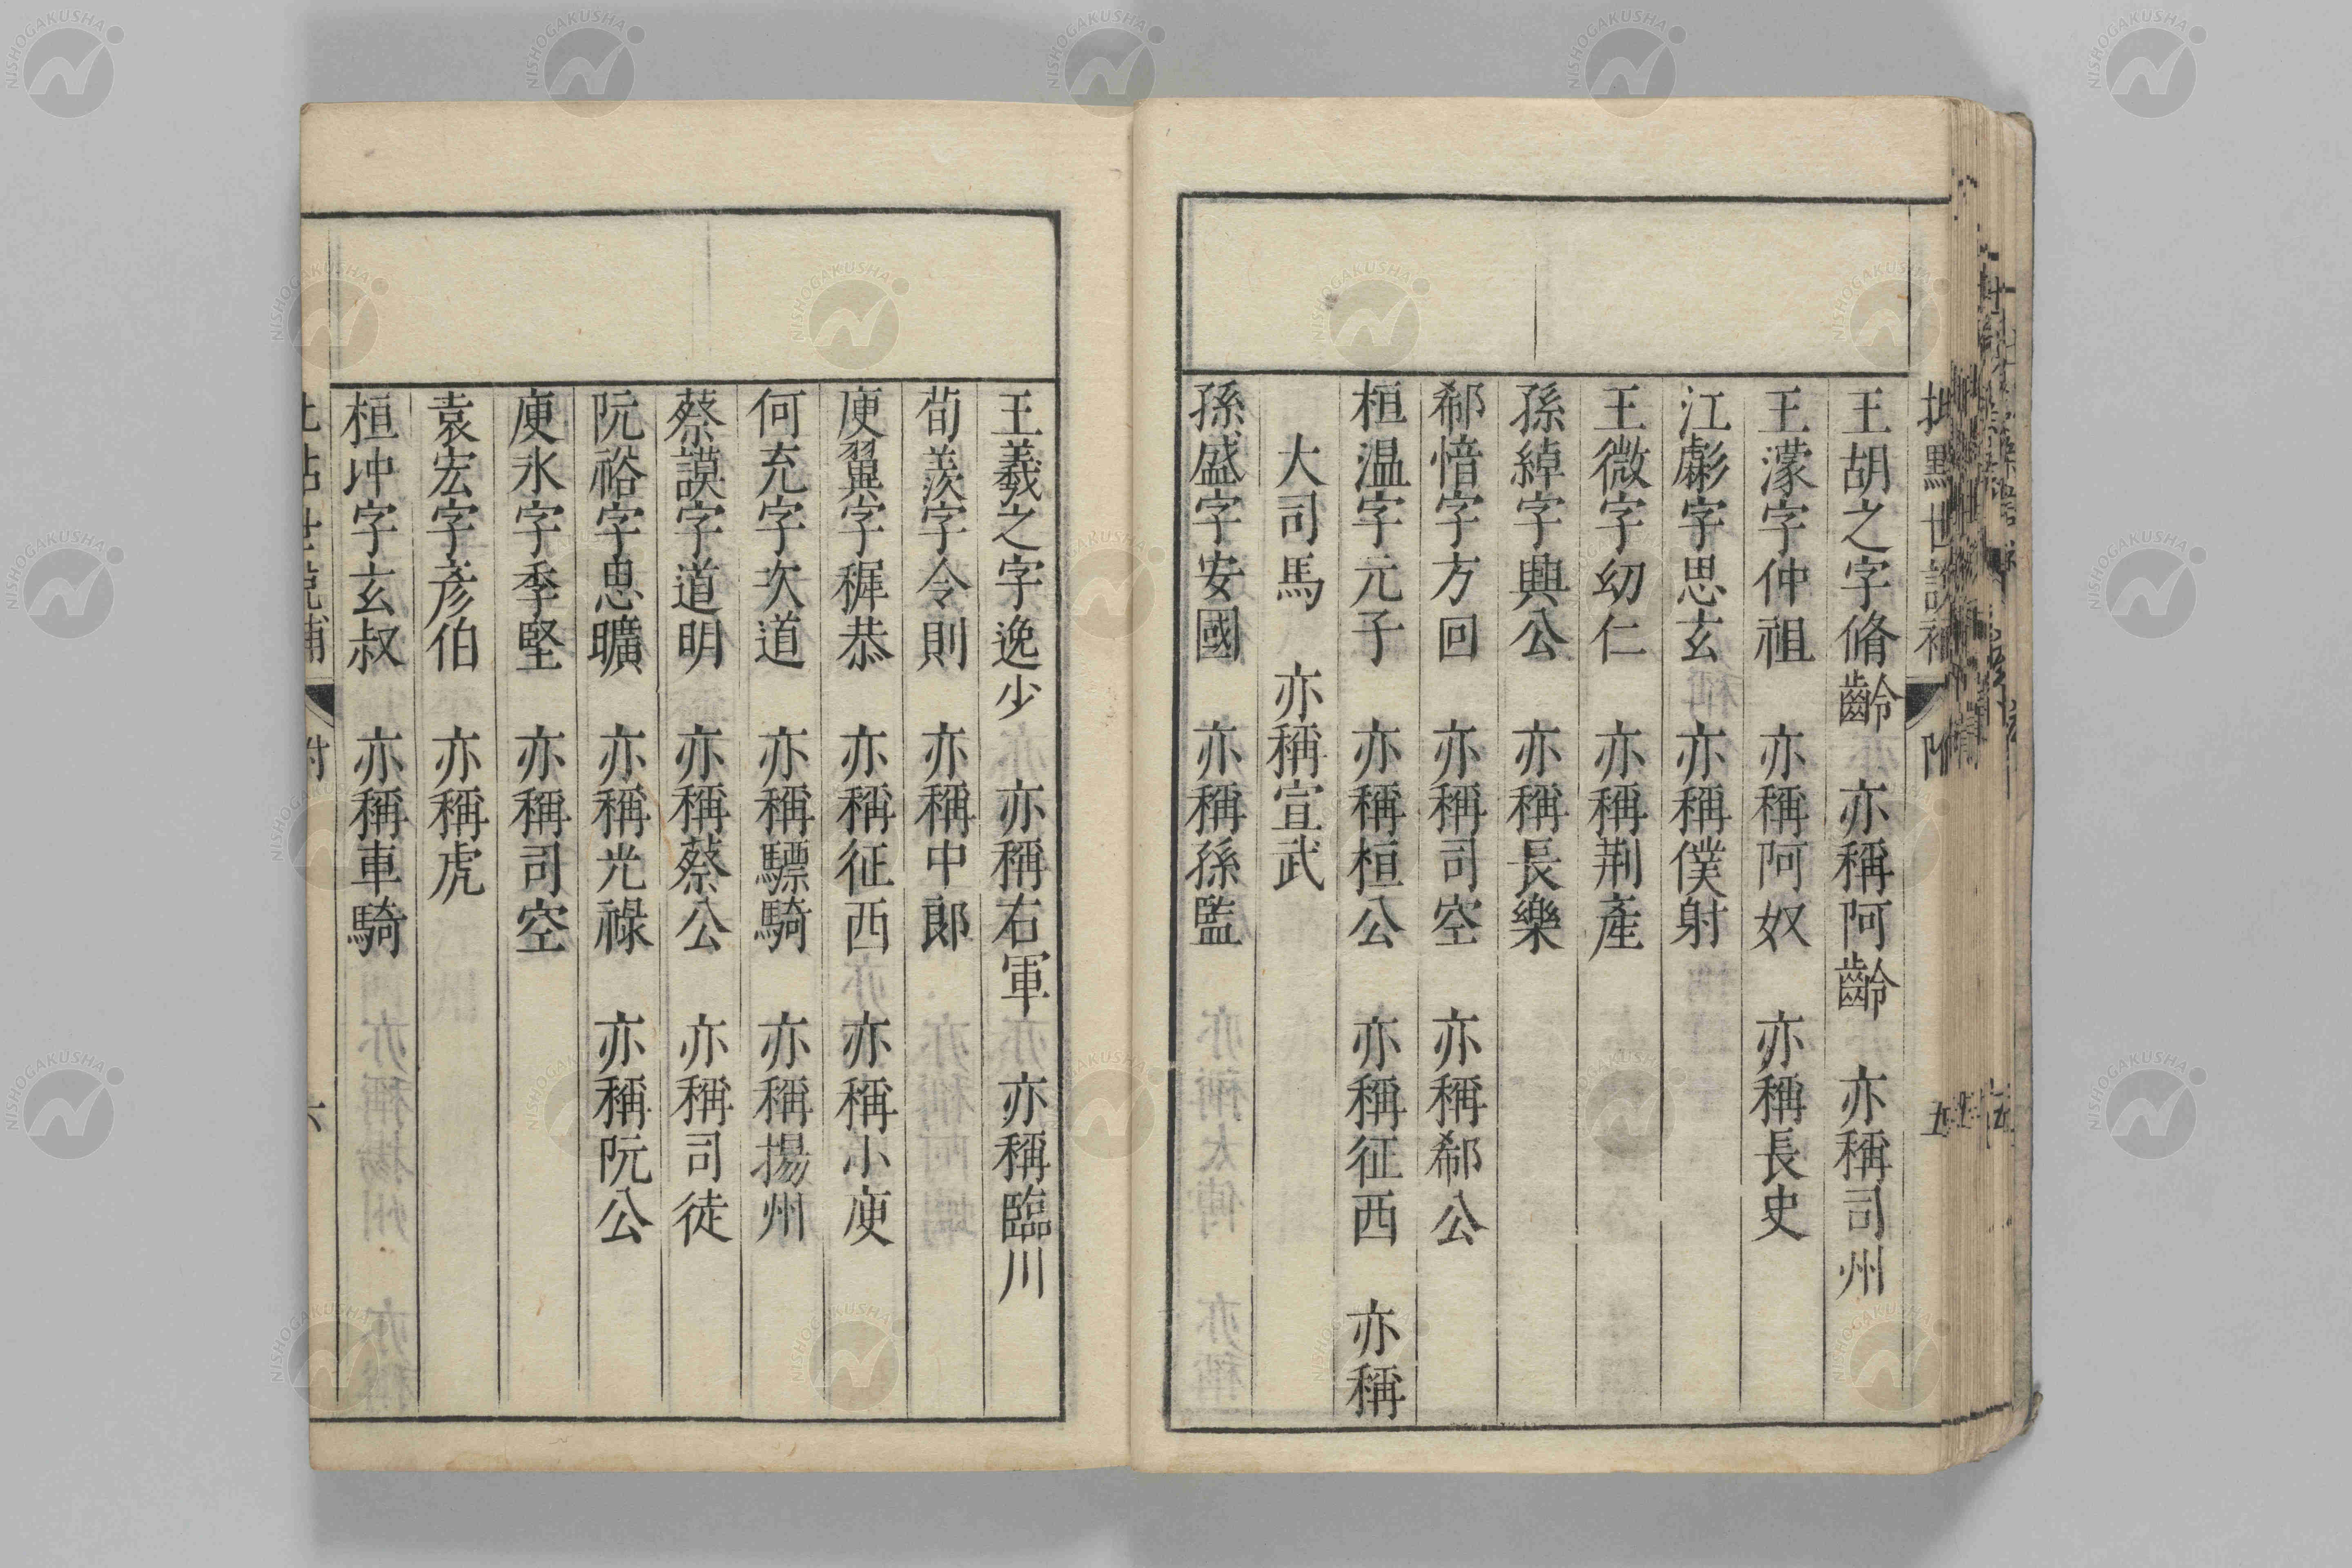 王胡之字脩齡　亦稱阿齡　亦稱司州
王濛字仲祖　亦稱阿奴　亦稱長史
江虨字思玄　亦稱僕射
王微字幼仁　亦稱荆產
孫綽字興公　亦稱長樂
郗愔字方回　亦稱司空　亦稱郗公
桓温字元子　亦稱桓公　亦稱征西　亦稱
大司馬　亦稱宣武
孫盛字安國　亦稱孫監
王羲之字逸少　亦稱右軍　亦稱臨川
荀羨字令則　亦稱中郞
庾翼字稺恭　亦稱征西　亦稱小庾
何充字次道　亦稱驃騎　亦稱揚州
蔡謨字道明　亦稱蔡公　亦稱司徒
阮裕字思曠　亦稱光祿　亦稱阮公
庾氷字季堅　亦稱司空
袁宏字彥伯　亦稱虎
桓冲字玄叔　亦稱車騎
NISHOGAKUSHA